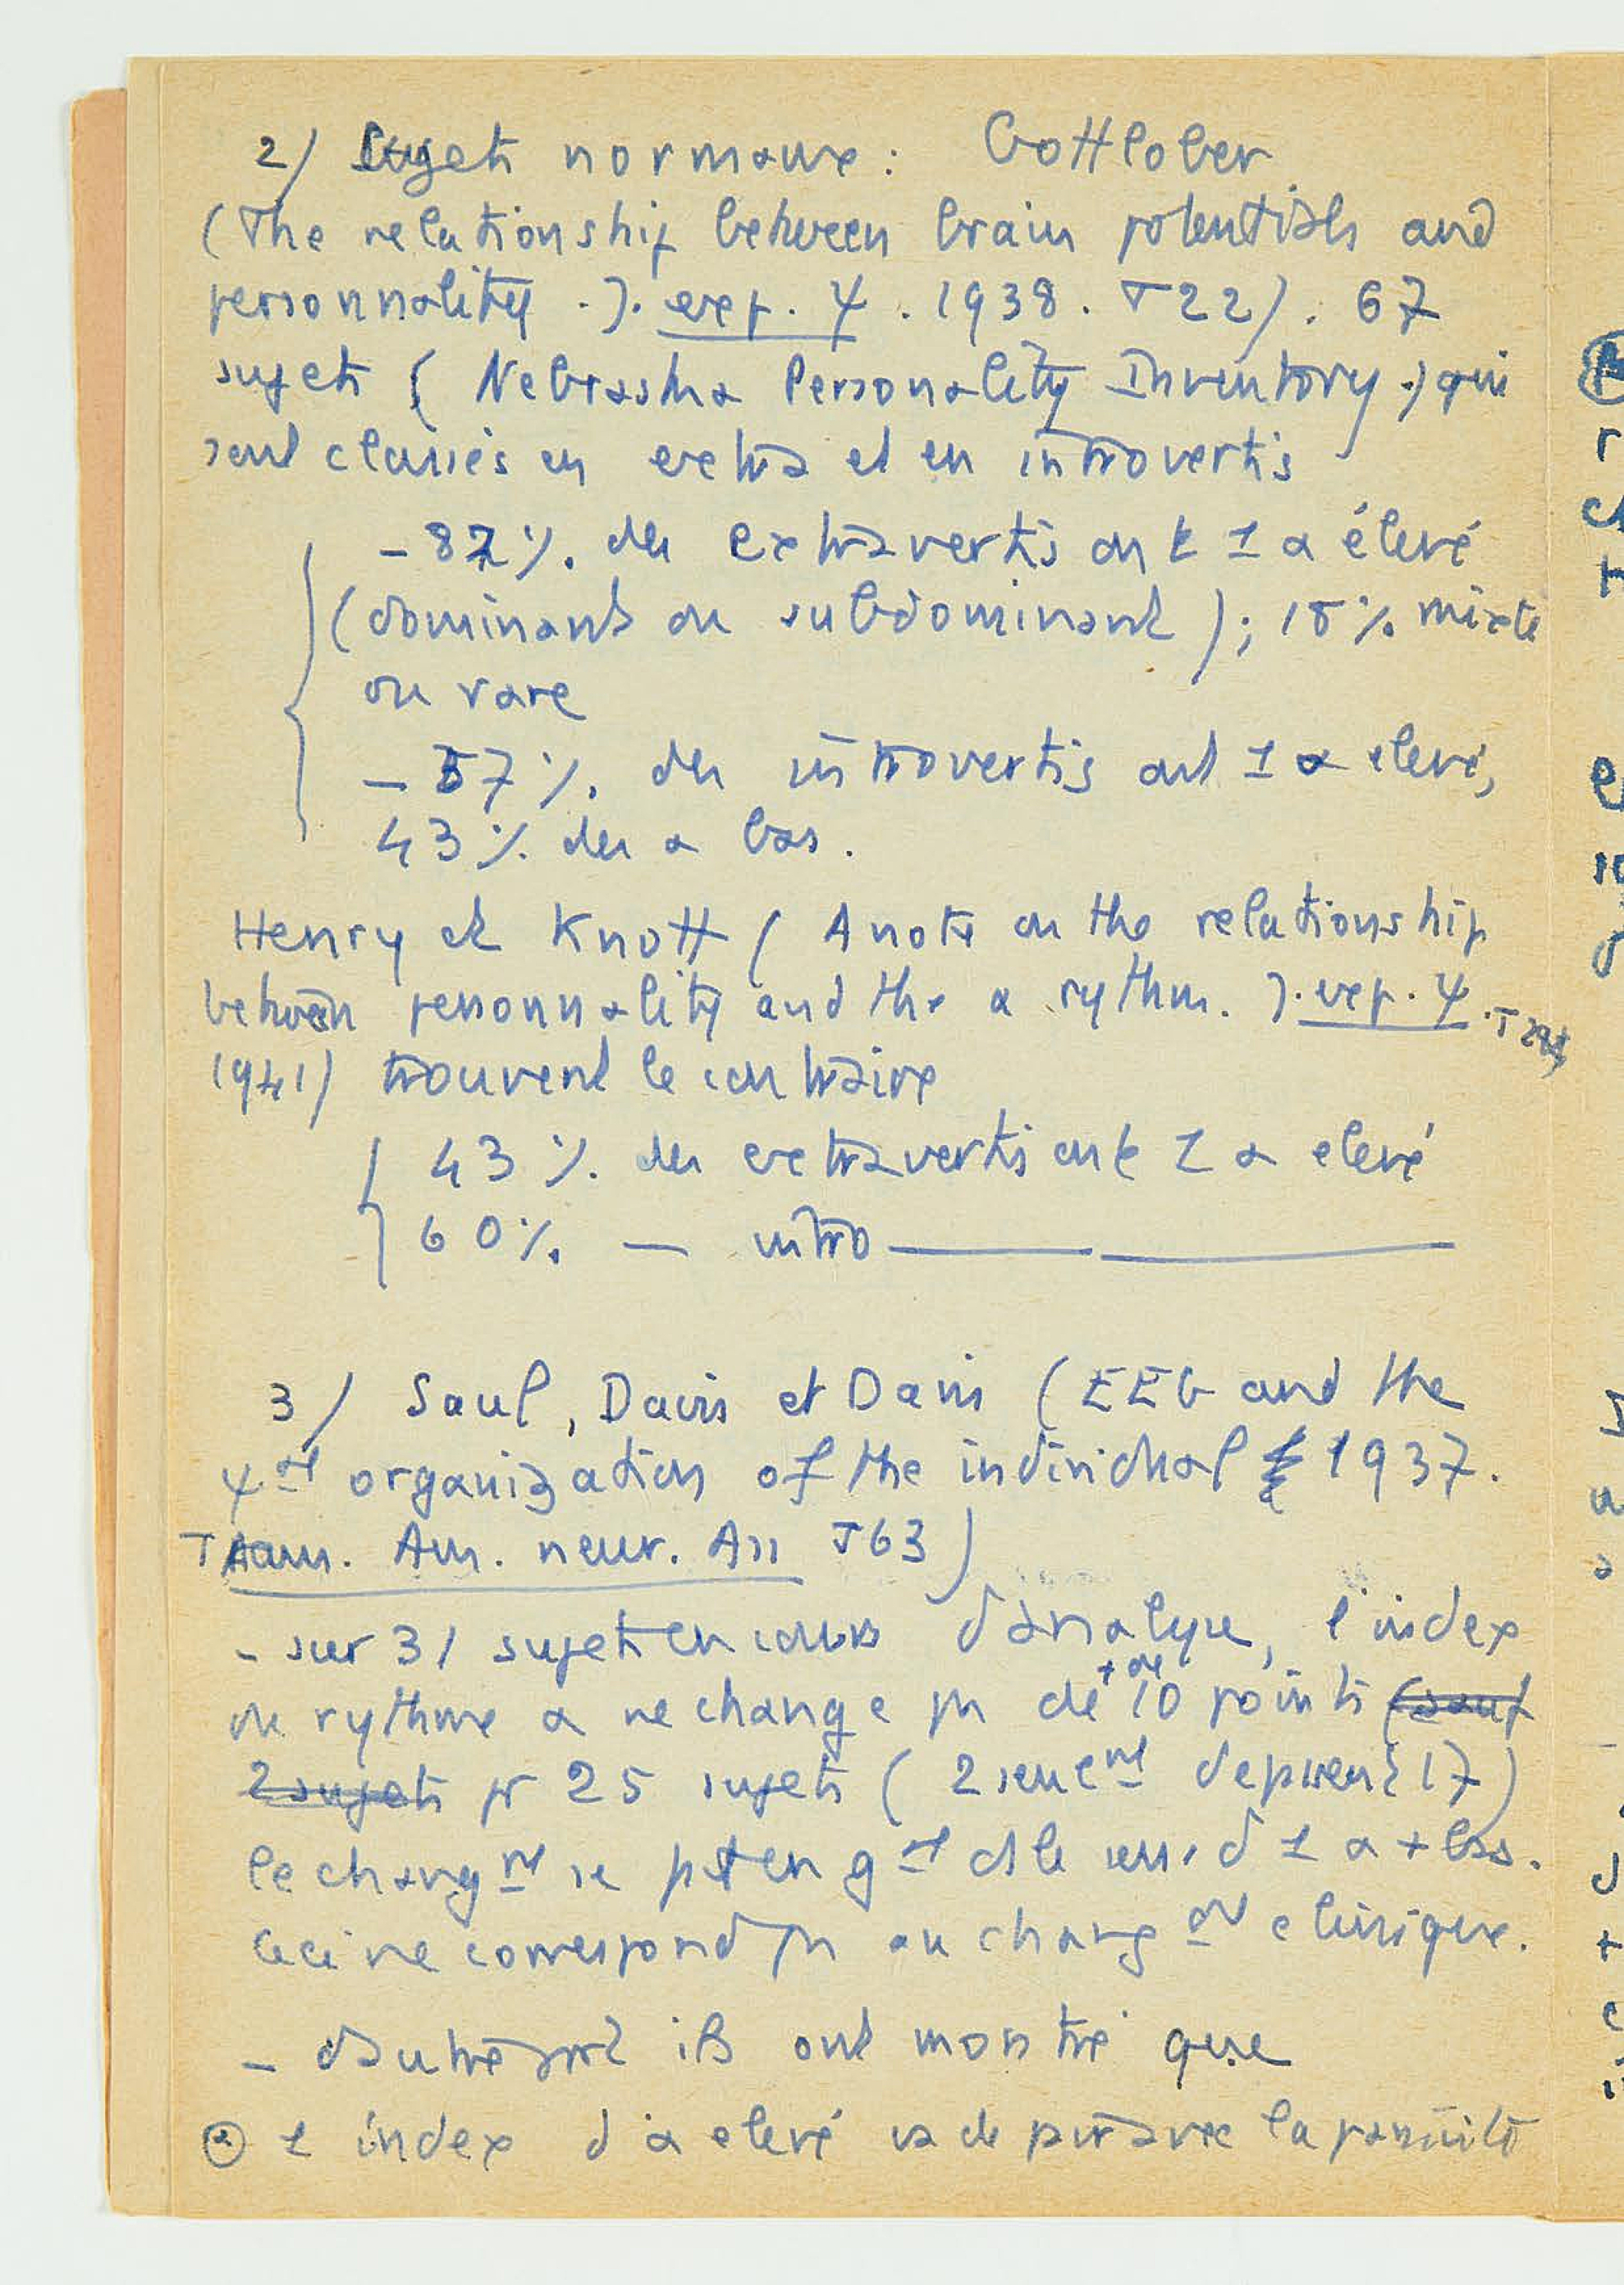 2/ Sujets normaux : Gottlober
(The relationship between brain potentials and
personnality . J. exp. Ψ . 1938 . T 22) . 67
sujets ( Nebraska Personality Inventory .) qui
sont classés en extra et en introvertis
- 82 %. des extravertis ont 1 α élevé
(dominant ou subdominant ) ; 18 %. mixte
ou rare
- 57 %. des introvertis ont 1 α elevé,
43 %. des α bas .
Henry et Knott ( A note on the relationship
between personnality and the α rythm. J. exp. Ψ . T
1941) trouvent le contraire
43 %. des extravertis ont 1 α elevé
60 %. — intro ——
3/ Saul, Davis et Davis (EEG and the
Ψal organization of the individual 1937.
Trans. Am. neur. Ass T63)
- sur 31 sujets en cours d'analyse, l'index
du rythme α ne change pas de + de 10 points (sauf
2 sujets pr 25 sujets ( 2 seuemt depassent 17)
le changmt se fait en gal ds le sens d 1 α + bas.
Ceci ne correspond pas au changmt clinique.
- d'autre part ils ont montré que
1 index d'α elevé va de pair avec la passivité